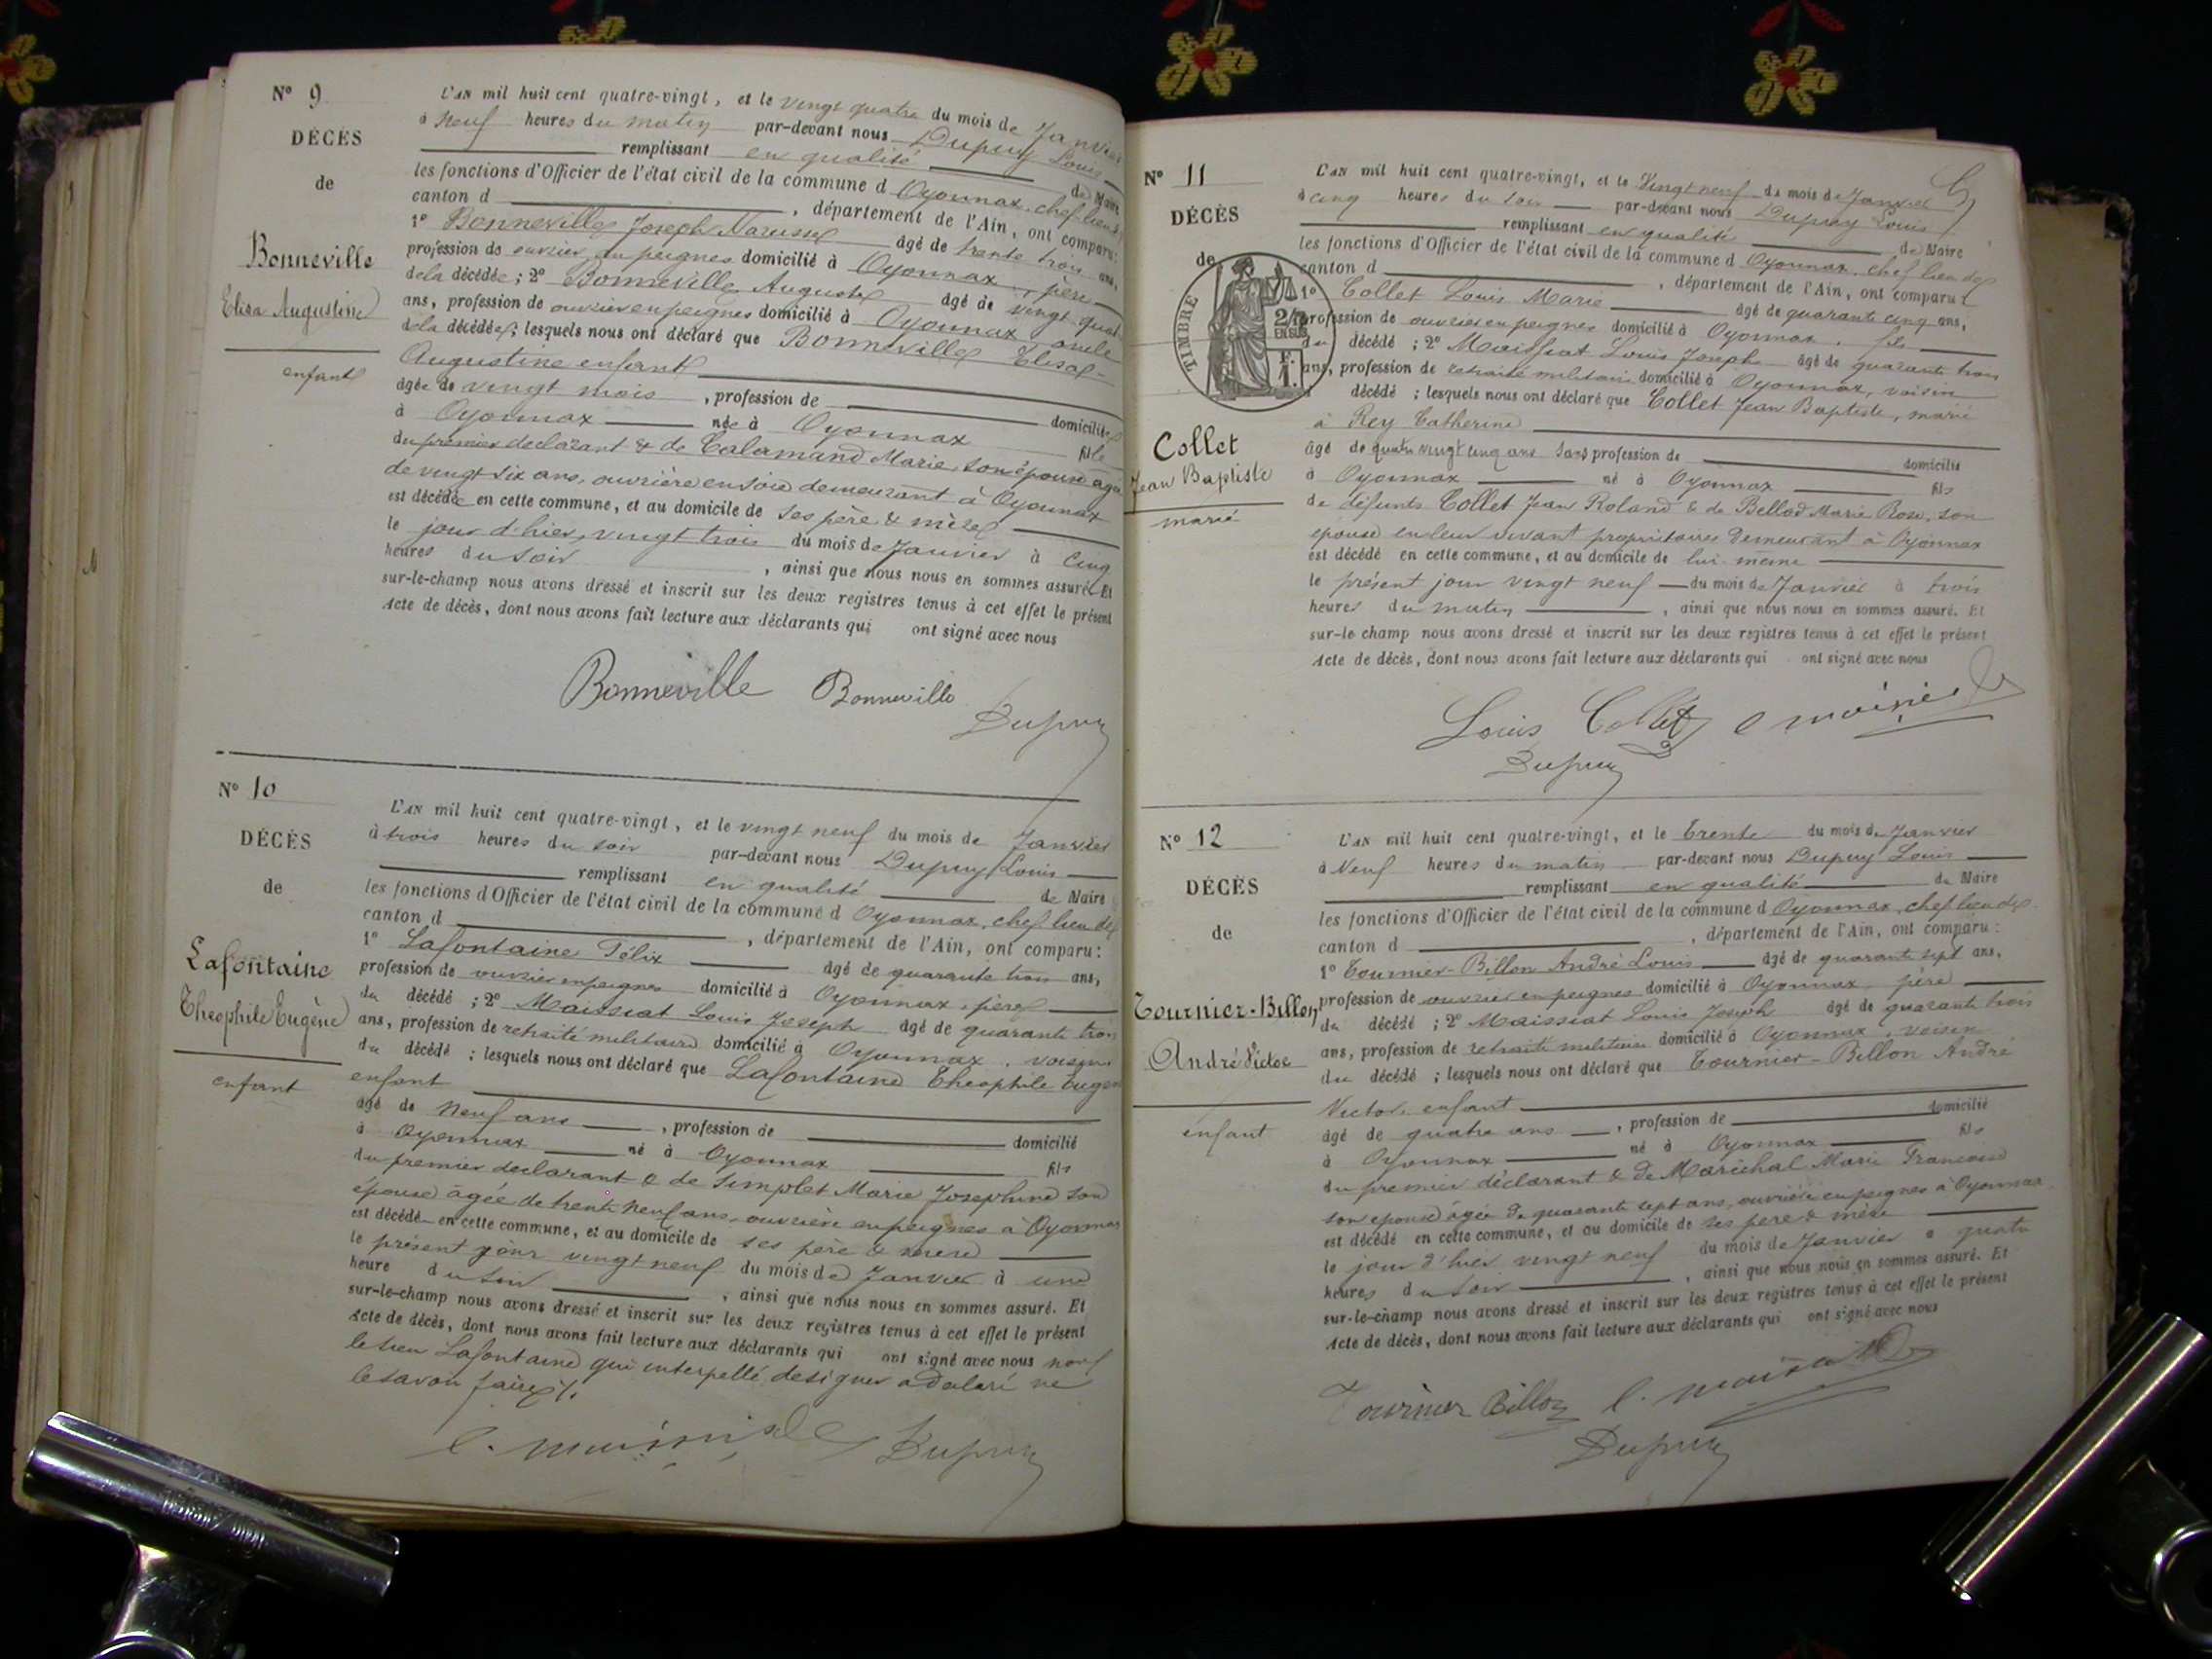 N° 9
DÉCÈS
de
Bonneville
Elisa Augustine
enfant
L'AN mil huit cent quatre-vingt, et le vingt quatre du mois de Janvier
à neuf heures du matin par-devant nous Dupuy Louis
remplissant en qualité de Maire
les fonctions d'Officier de l'état civil de la commune d Oyonnax, chef lieu de
canton d , département de l'Ain, ont comparu:
1° Bonneville Joseph Narcisse âgé de trente trois ans,
profession de ouvrier en peignes domicilié à Oyonnax, père
de la décédée; 2° Bonneville Auguste âgé de vingt quatre
ans, profession de ouvrier en peignes domicilié à Oyonnax, oncle
de la décédée; lesquels nous ont déclaré que Bonneville Elisa-
Augustine enfant
âgée de vingt mois , profession de domiciliée
à Oyonnax née à Oyonnax fille
du premier declarant & de Calamand Marie, son épouse agée
de vingt six ans, ouvrière en soie demeurant à Oyonnax
est décédée en cette commune, et au domicile de ses père & mère
le jour d'hier, vingt trois du mois de Janvier à cinq
heures du soir , ainsi que nous nous en sommes assuré. Et
sur-le-champ nous avons dressé et inscrit sur les deux registres tenus à cet effet le présent
Acte de décès, dont nous avons fait lecture aux déclarants qui ont signé avec nous
Bonneville Bonneville
Dupuy
N° 10
DÉCÈS
de
Lafontaine
Theophile Eugène
enfant
L'AN mil huit cent quatre-vingt, et le vingt neuf du mois de Janvier
à trois heures du soir par-devant nous Dupuy Louis
remplissant en qualité de Maire
les fonctions d'Officier de l'état civil de la commune d Oyonnax, chef lieu de
canton d , département de l'Ain, ont comparu:
1° Lafontaine Félix âgé de quarante trois ans,
profession de ouvrier en peignes domicilié à Oyonnax, père
du décédé; 2° Maissiat Louis Joseph âgé de quarante trois
ans, profession de retraité militaire domicilié à Oyonnax, voisin
du décédé; lesquels nous ont déclaré que Lafontaine Theophile Eugène
enfant
âgé de neuf ans , profession de domicilié
à Oyonnax né à Oyonnax fils
du premier declarant & de Simplet Marie Josephine son
épouse âgée de trente neuf ans, ouvrière en peignes à Oyonnax
est décédé en cette commune, et au domicile de ses père & mère
le présent jour vingt neuf du mois de Janvier à une
heure du soir , ainsi que nous nous en sommes assuré. Et
sur-le-champ nous avons dressé et inscrit sur les deux registres tenus à cet effet le présent
Acte de décès, dont nous avons fait lecture aux déclarants qui ont signé avec nous non
le sieur Lafontaine qui interpellé de signer a declaré ne
le savoir faire
Dupuy
N° 11
DÉCÈS
de
TIMBRE
2/10 EN SUS
1 F.
Collet
Jean Baptiste
marié
L'AN mil huit cent quatre-vingt, et le Vingt neuf du mois de Janvier
à cinq heures du soir par-devant nous Dupuy Louis
remplissant en qualité de Maire
les fonctions d'Officier de l'état civil de la commune d Oyonnax, chef lieu de
canton d , département de l'Ain, ont comparu
1° Collet Louis Marie âgé de quarante cinq ans,
profession de ouvrier en peignes domicilié à Oyonnax, fils
du décédé; 2° Maissiat Louis Joseph âgé de quarante trois
ans, profession de retraité militaire domicilié à Oyonnax, voisin
décédé; lesquels nous ont déclaré que Collet Jean Baptiste, marié
à Rey Catherine
âgé de quatre vingt cinq ans Sans profession de domicilié
à Oyonnax né à Oyonnax fils
de défunts Collet Jean Roland & de Bellod Marie Rose, son
épouse en leur vivant propriétaires demeurant à Oyonnax
est décédé en cette commune, et au domicile de lui-même
le présent jour vingt neuf du mois de Janvier à trois
heures du matin , ainsi que nous nous en sommes assuré. Et
sur-le champ nous avons dressé et inscrit sur les deux registres tenus à cet effet le présent
Acte de décès, dont nous avons fait lecture aux déclarants qui ont signé avec nous
Louis Collet
Dupuy
N° 12
DÉCÈS
de
Tournier-Billon
André Victor
enfant
L'AN mil huit cent quatre-vingt, et le Trente du mois de Janvier
à Neuf heures du matin par-devant nous Dupuy Louis
remplissant en qualité de Maire
les fonctions d'Officier de l'état civil de la commune d Oyonnax, chef lieu de
canton d , département de l'Ain, ont comparu:
1° Tournier-Billon André Louis âgé de quarante sept ans,
profession de ouvrier en peignes domicilié à Oyonnax, père
du décédé; 2° Maissiat Louis Joseph âgé de quarante trois
ans, profession de retraité militaire domicilié à Oyonnax, voisin
du décédé; lesquels nous ont déclaré que Tournier-Billon André
Victor, enfant
âgé de quatre ans , profession de domicilié
à Oyonnax né à Oyonnax fils
du premier déclarant & de Maréchal Marie Francoise
son épouse âgée de quarante sept ans, ouvrière en peignes à Oyonnax
est décédé en cette commune, et au domicile de ses père & mère
le jour d'hier vingt neuf du mois de Janvier à quatre
heures du soir , ainsi que nous nous en sommes assuré. Et
sur-le-champ nous avons dressé et inscrit sur les deux registres tenus à cet effet le présent
Acte de décès, dont nous avons fait lecture aux déclarants qui ont signé avec nous
Tournier Billon l. maissiat
Dupuy